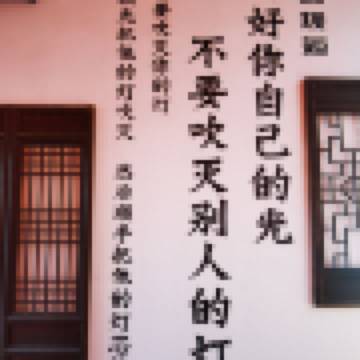 好你自己的光
不要吹灭别人的灯
要吹灭你的灯
先把他的灯吹灭 然后顺手把他的灯